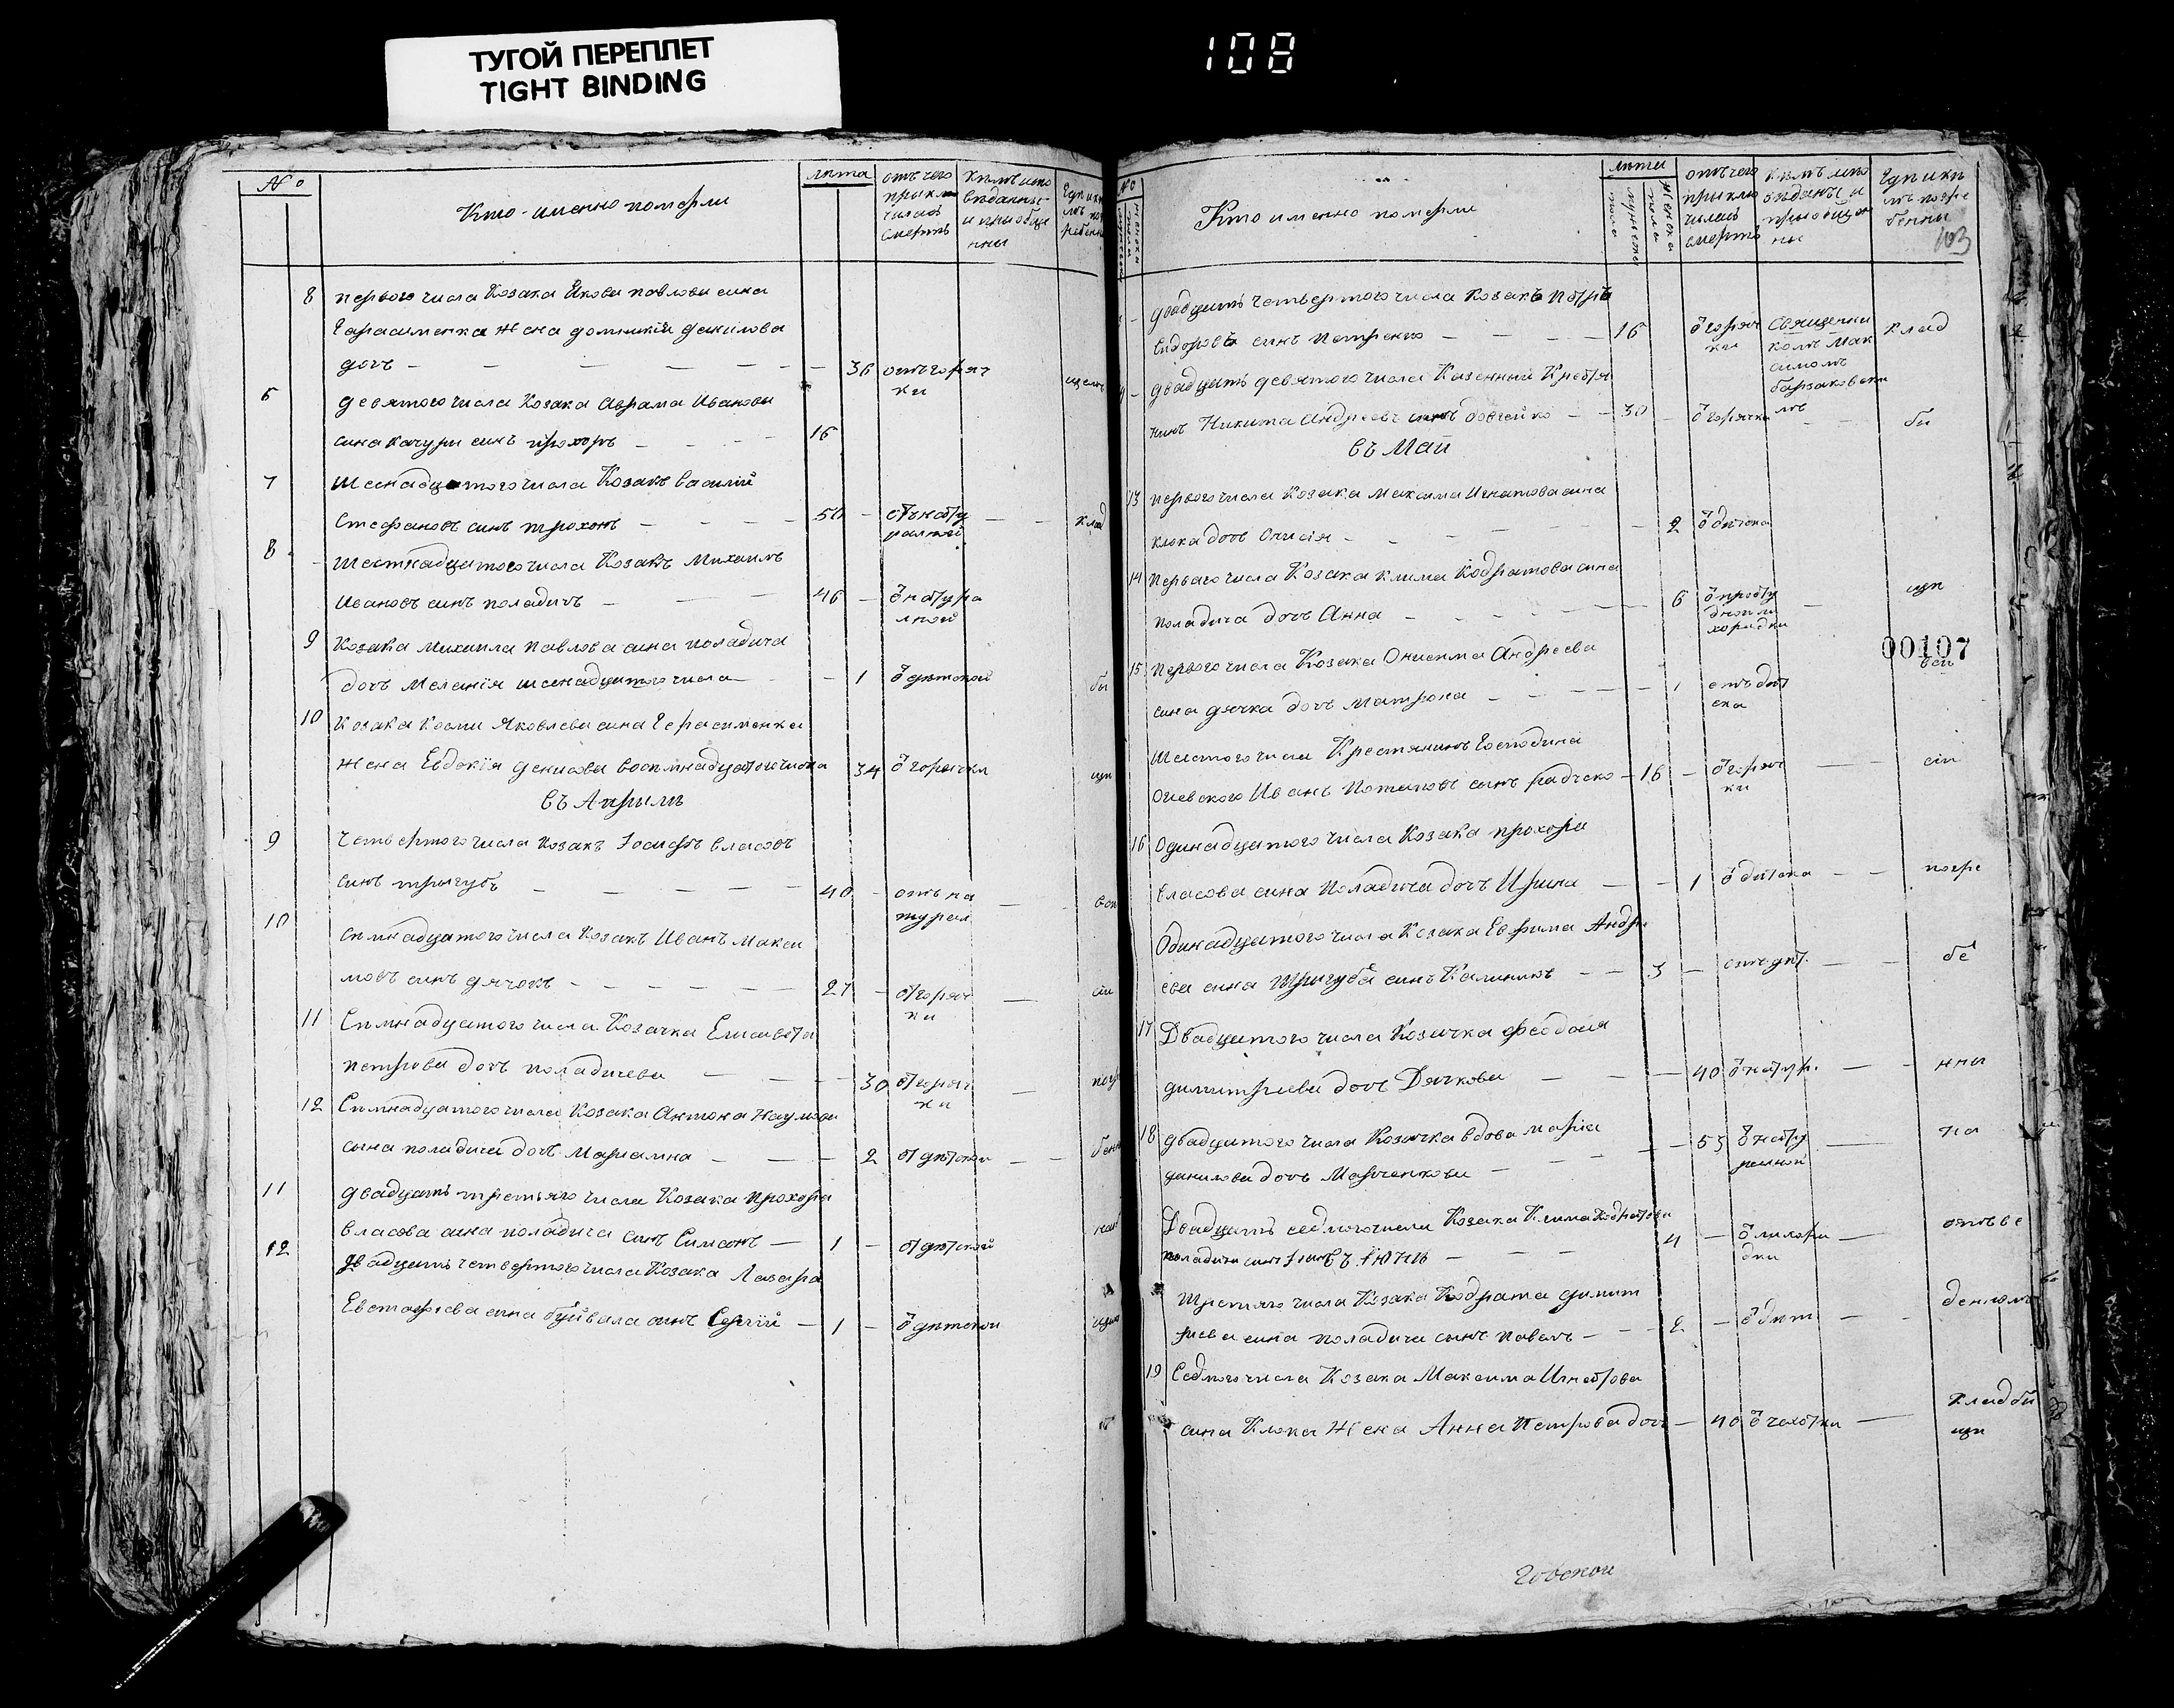 ТУГОЙ ПЕРЕПЛЕТ
TIGHT BINDING
108
№
Кто именно померли
лѣта
отъ чего приклю чилась смерть
кѣмъ испо вѣданны и приобще нны
8 первого числа Козака Якова павлова сина
Герасименка жена домникія данилова
дочь — — — — — 36 отъ горяч
ки
6 девятого числа Козака Аврама Иванова
сина качури синъ прохоръ — — — 16
7 шеснадцятого числа Козакъ василий
Стефановъ синъ трохонъ — — — 50 — отъ нату
ралной
8 шестнадцятого числа Козакъ Михаилъ
Ивановъ синъ поладичъ — — — 46 — ѿ натура
лной
9 Козака Михаила павлова сина поладича
дочь Меланія шеснадцятого числа — — 1 ѿ дѣтской
10 Козака Козми Яковлева сина Герасименка
жена Евдокія денисова восемнадцятого числа 34 ѿ горячки
въ Априлѣ
9 четвертого числа Козакъ Іосифъ власовъ
синъ тригубъ — — — — — 40 — отъ на
турал
10 Семнадцятого числа Козакъ Иванъ Макси
мовъ синъ дячокъ — — — — — 27 — ѿ горяч
ки
11 Семнадцятого числа Козачка Елисавета
петрова дочь поладичева — — — 30 ѿ горяч
ки
12 Семнадцятого числа Козака Антона Наумова
сина поладича дочь Мариамна — — — 2 ѿ дѣтской
11 двадцять третьяго числа Козака прохора
власова сина поладича синъ Симонъ — 1 — ѿ дѣтской
12 двадцять четвертого числа Козака Лазара
Евстафиева сина буйвала синъ Сергій — 1 — ѿ дѣтской
№
Кто именно померли
лѣта
мужеска пола
женска пола
отъ чего приклю чилась смерть
кѣмъ испо вѣданы и приобще ны
Гдѣ и кѣ мъ погре бенны
103
двадцять четвертого числа Козакъ Петръ
Сидоровъ синъ петренко — — — 16 ѿ горяч
ки Священни
комъ Мак
симомъ
клад
двадцять девятого числа Казенный Крестя
нинъ Никита Андреевъ синъ — — 30 — ѿ горячки — — би
въ Маи
13 первого числа Козака Максима Игнатова сина
клюка дочь — — — — 2 ѿ дѣтска
14 Первого числа Козака клима Кодратова сина
поладича дочь Анна — — — — 6 ѿ просту
дной ли
хорадки — щи
00107
15 первого числа Козака Онисима Андреева
сина дячка дочь Матрона — — — 1 отъ дѣт
ска
Шестого числа Крестянинъ Господина
Иванъ Потаповъ синъ радченко — 16 — ѿ горяч
ки — — сіи
16 Одинадцятого числа Козака прохора
власова сина Поладича дочь Ирина — — 1 ѿ дѣтска — — погре
Одинадцятого числа Козака Евфима Андре
ева сина Тригуба синъ Калиникъ — — 3 — отъ дѣт. — — бе
17 Двадцятого числа Козачка феодосия
димитриева дочь Дячкова — — — 40 ѿ натур. — — нны
18 двадцятого числа Козачка вдова мария
данилова дочь Марченкова — — — 55 ѿ нату
ралной — на
Двадцять седмого числа Козака Клима Кодратова
поладича синъ — — — 4 — ѿ лихора
дки —
въ Июнѣ
третяго числа Козака Кодрата димит
риева сина поладича синъ павелъ — — 2 — ѿ дѣт — —
19 Седмого числа Козака Максима Игнатова
сина Клюка жена Анна Петрова дочь — 40 ѿ чахотки — кладби
щи